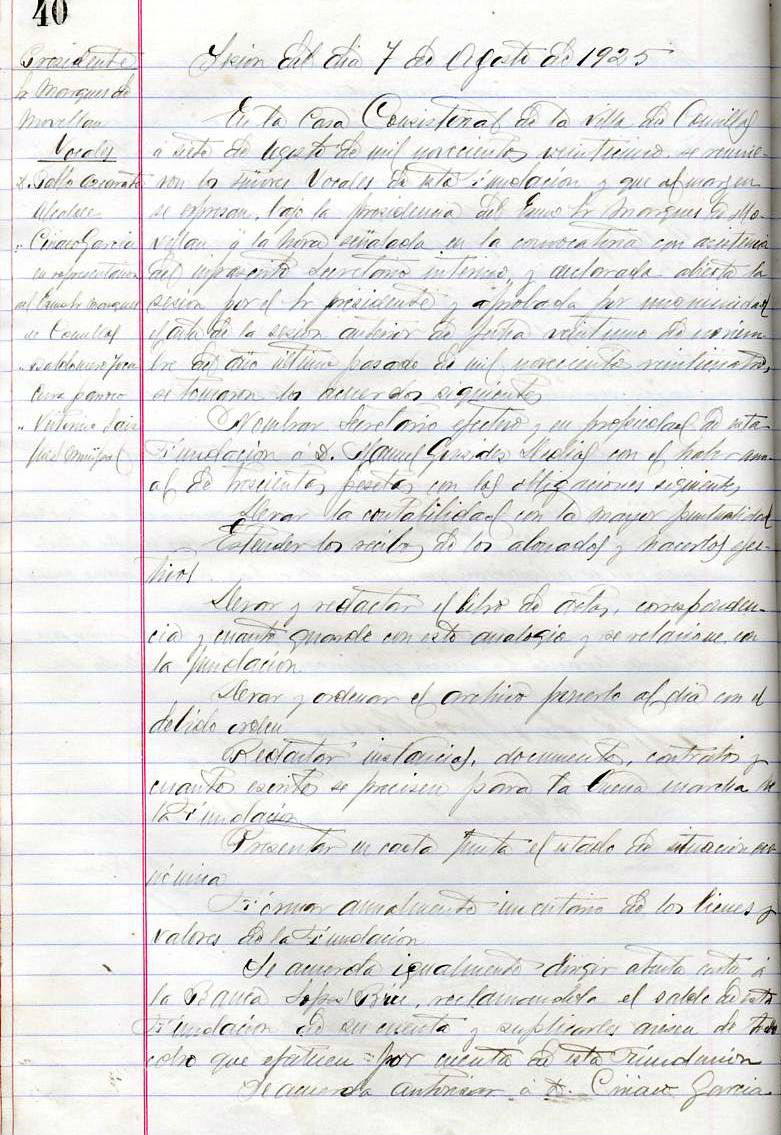 40
Presidente
Sr Marques de
Movellan
Vocales
D. Pablo
Alcalde
" Ciriaco Garcia
en representacion
del Exmo Sr Marques
de Comillas
cura parroco
Juez Municipal
Sesion del dia 7 de Agosto de 1925
En la Casa Consistorial de la villa de Comillas
a siete de Agosto de mil novecientos veinticinco, se reunie-
ron los señores Vocales de esta Fundación y que al margen
se expresan, bajo la presidencia del Exmo Sr Marques de Mo-
vellan y la hora señalada en la convocatoria con asistencia
del infrascrito Secretario interino, y declarada abierta la
sesion por el Sr presidente y aprobada por unanimidad
el acta de la sesion anterior de fecha veintiuno de noviem-
bre del año ultimo pasado de mil novecientos veinticuatro,
se tomaron los acuerdos siguientes
Nombrar Secretario efectivo y en propiedad de esta
Fundación á D. Manuel con el haber anu-
al de trescientas pesetas con las obligaciones siguientes
Llevar la contabilidad con la mayor puntualidad
Extender los recibos de los abonados y hacerlos efec-
tivos
Llevar y redactar el libro de actas, corresponden-
cia y cuanto guarde con esto analogia y se relacione con
la fundación
Llevar y ordenar el archivo ponerlo al dia con el
debido orden
Redactar instancias, documentos, contratos y
cuantos escritos se precisen para la buena marcha de
la Fundación
Presentar en cada junta el estado de situación eco-
nómica
Formar anualmente inventario de los bienes y
valores de la Fundación
Se acuerda igualmente dirigir atenta carta á
la Banca Lopez Bru, reclamandola el saldo de esta
Fundación de su cuenta y suplicarles avisen de todo
cobro que efectuen por cuenta de esta Fundación
Se acuerda autorizar á D. Ciriaco Garcia